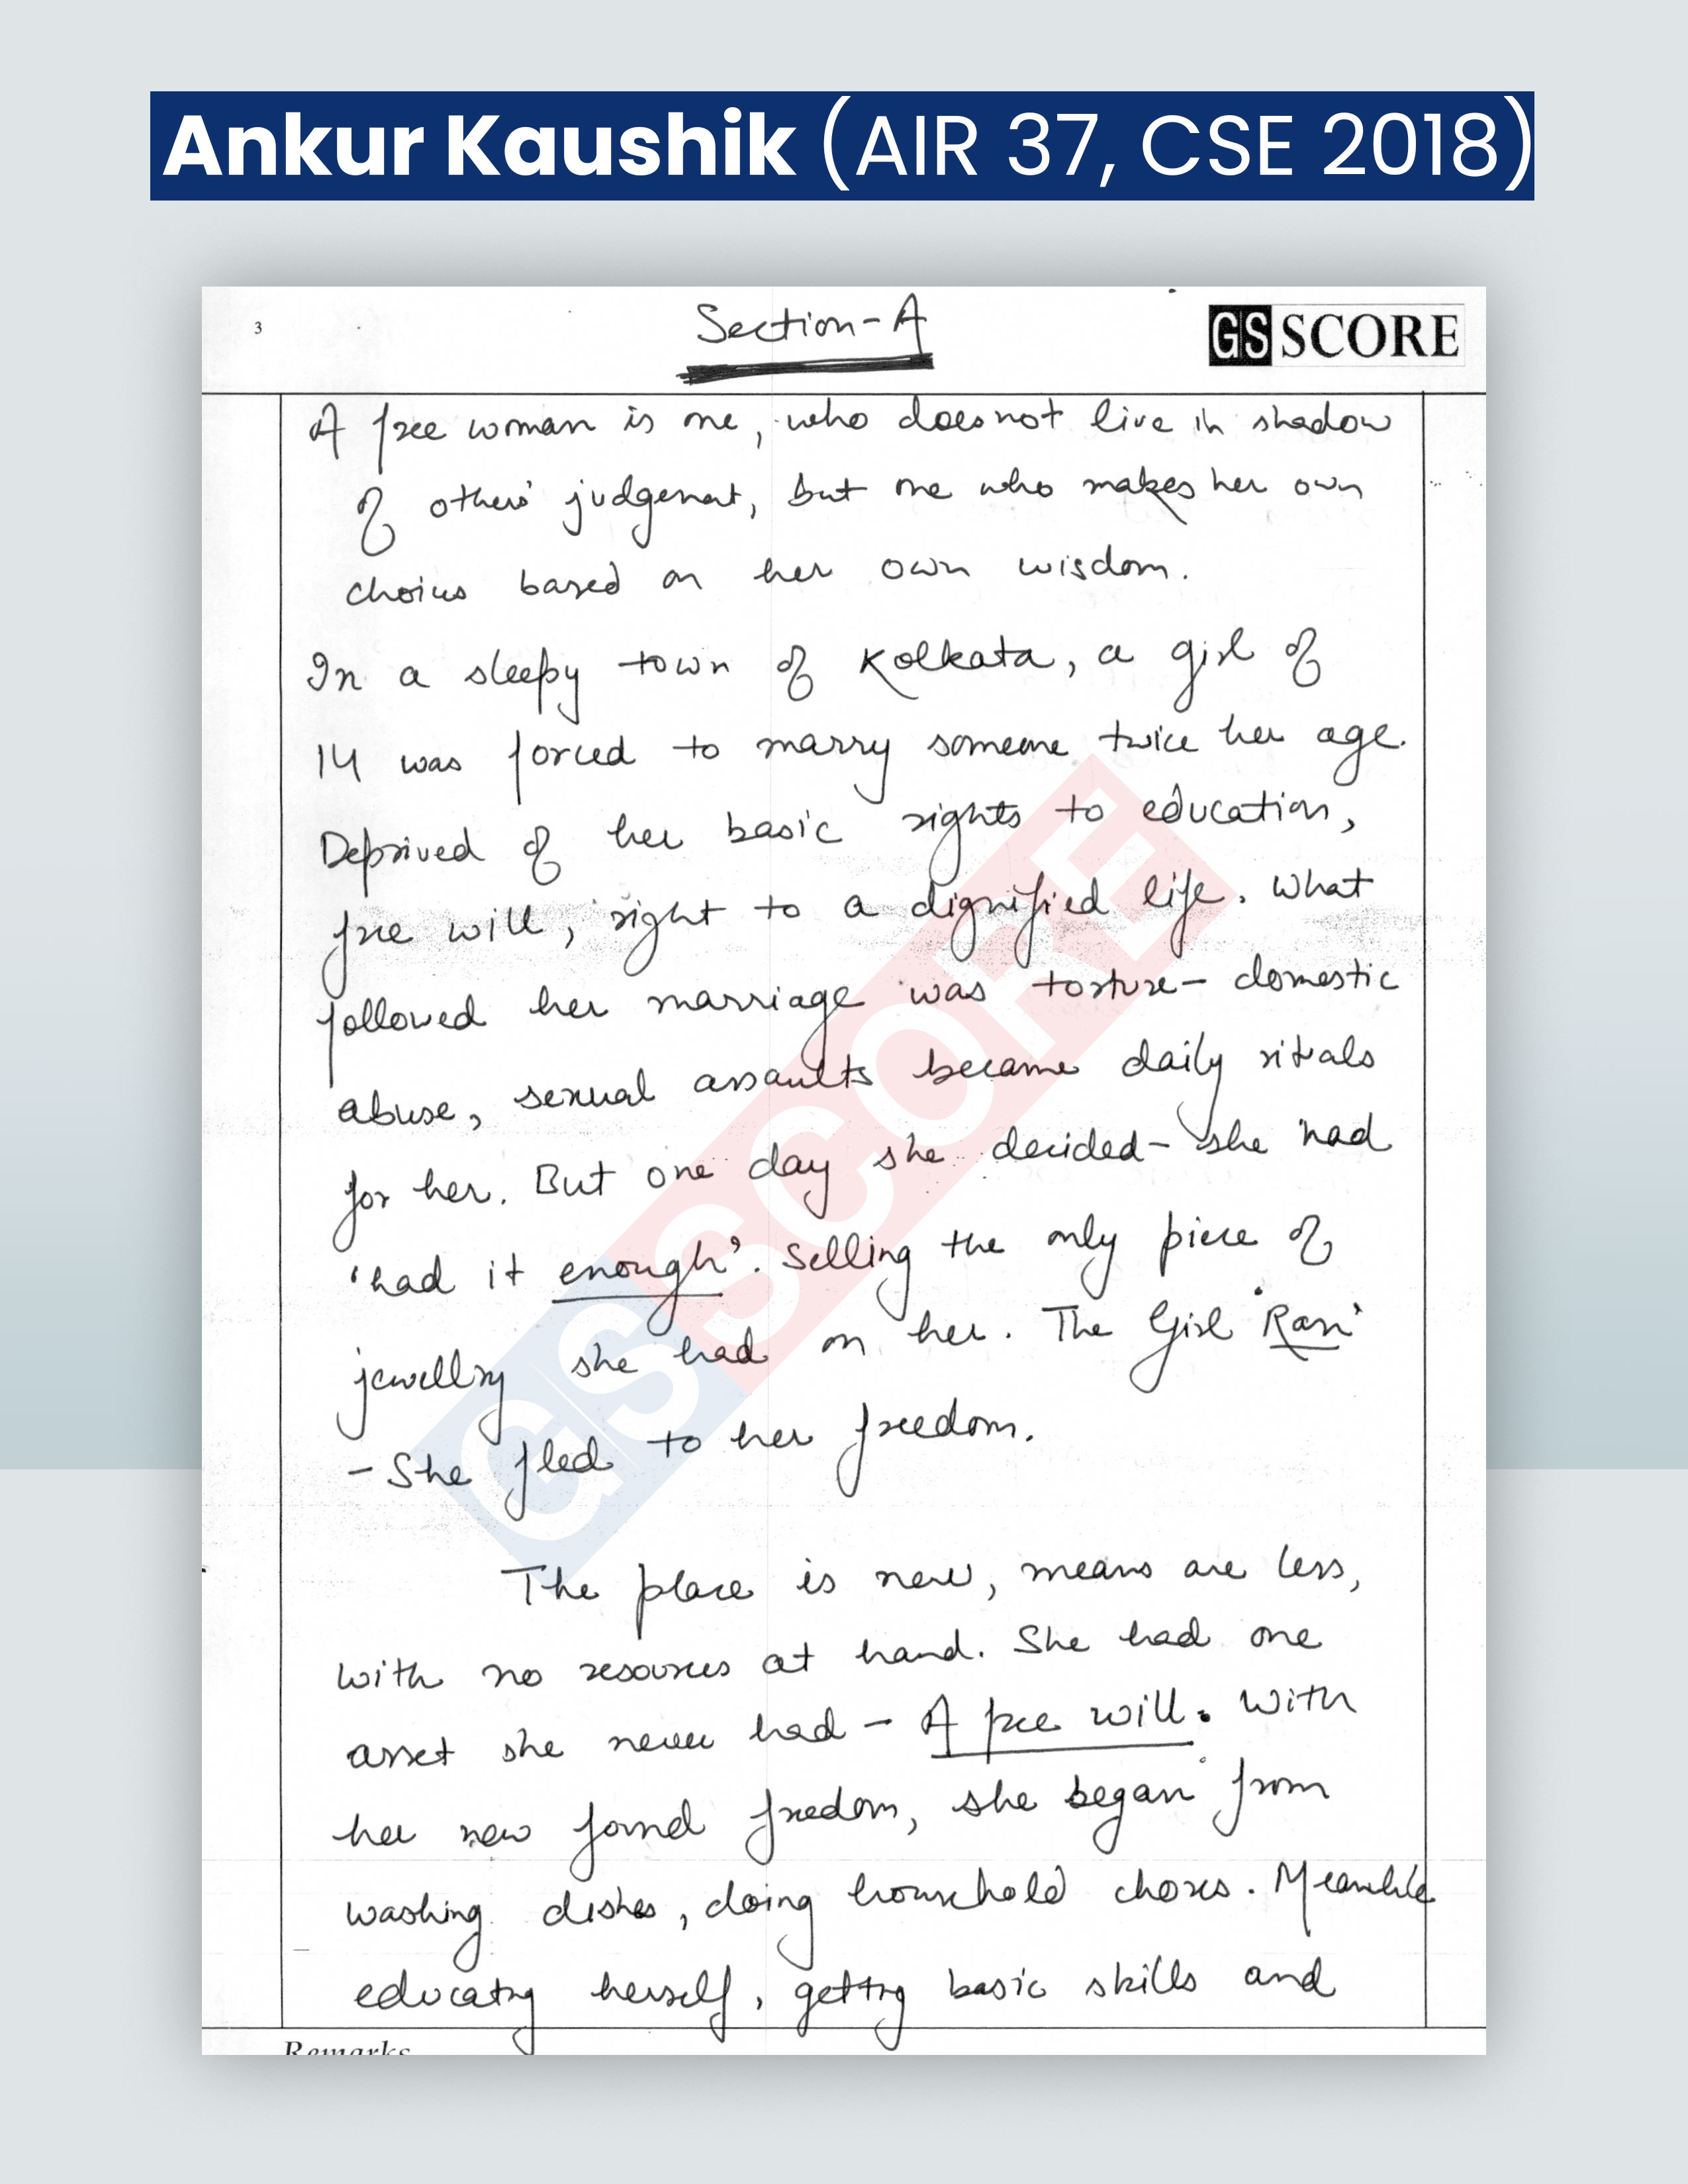 Ankur Kaushik (AIR 37, CSE 2018)
3
Section-A
GS SCORE
A free woman is one, who does not live in shadow
of others' judgement, but one who makes her own
choices based on her own wisdom.
In a sleepy town of Kolkata, a girl of
14 was forced to marry someone twice her age.
Deprived of her basic rights to education,
free will, right to a dignified life. What
followed her marriage was torture- domestic
abuse, sexual assaults became daily rituals
for her. But one day she decided- she had
'had it enough'. Selling the only piece of
jewellry she had on her. The Girl 'Rani'
- She fled to her freedom.
The place is new, means are less,
with no resources at hand. She had one
asset she never had - A free will. With
her new found freedom, she began from
washing dishes, doing household chores. Meanwhile
educating herself, getting basic skills and
Remarks
GSSCORE